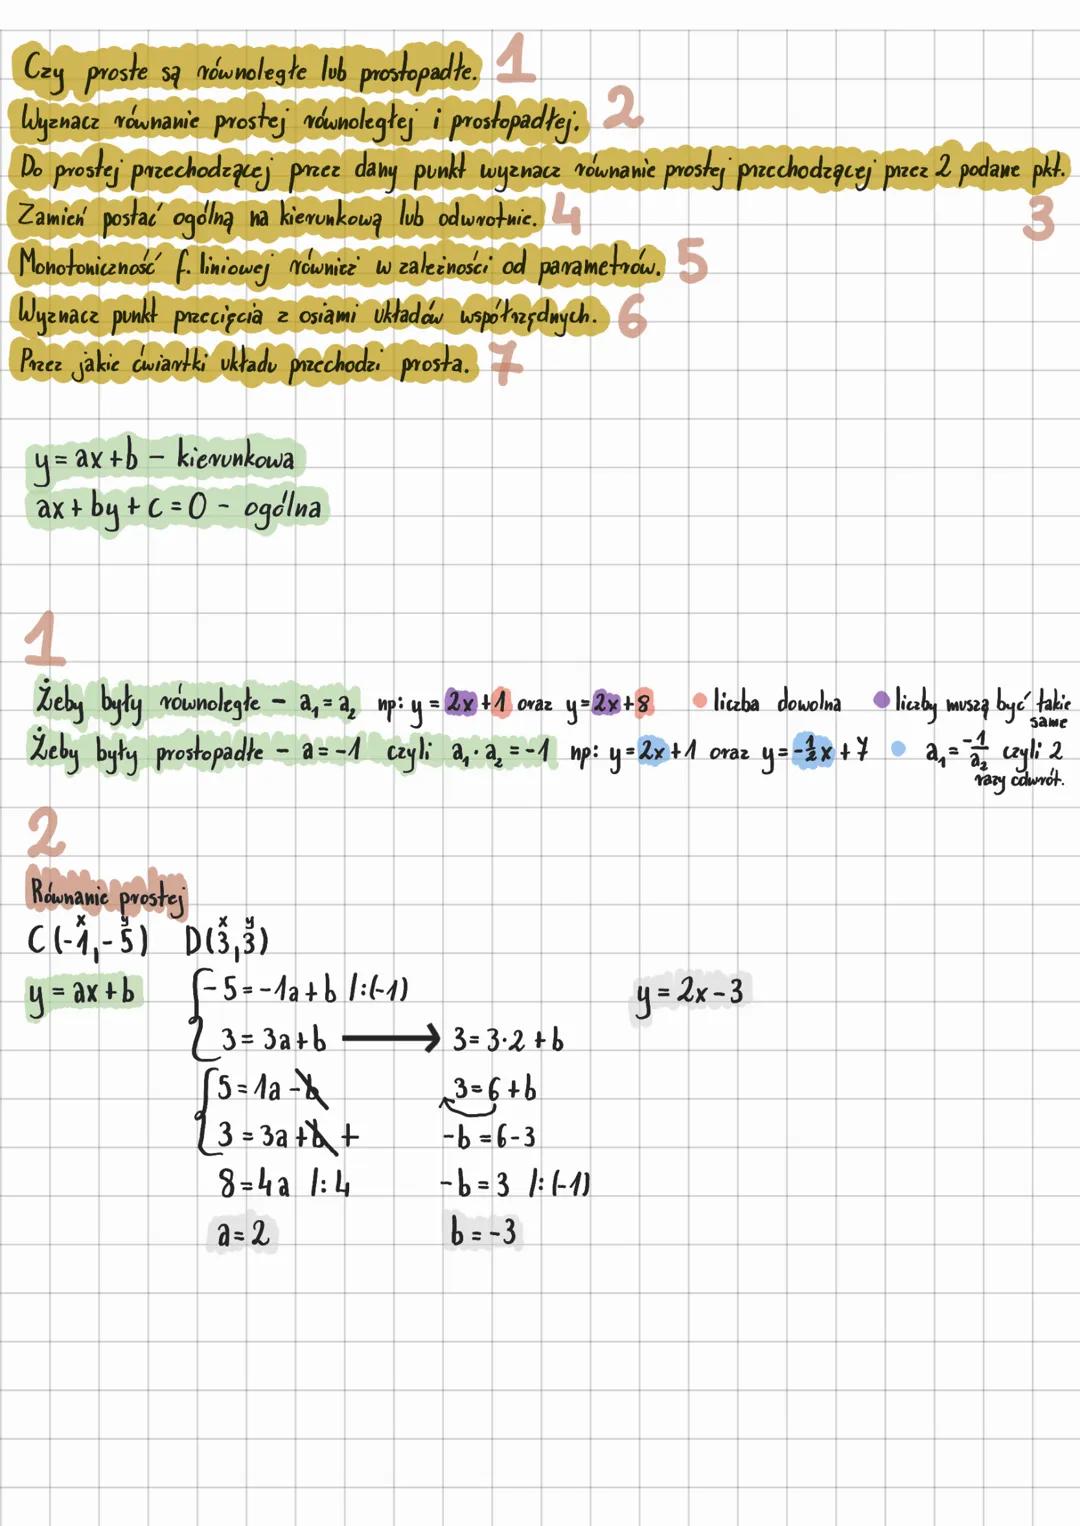 Czy proste są równoległe lub prostopadłe. 1
Wyznacz równanie prostej równoległej i prostopadłej. 2
Do prostej przechodzącej przez dany punkt wyznacz równanie prostej przechodzącej przez 2 podane pkt. 3
Zamień postać ogólną na kierunkową lub odwrotnie. 4
Monotoniczność f. liniowej również w zależności od parametrów. 5
Wyznacz punkt przecięcia z osiami układów współrzędnych. 6
Przez jakie ćwiartki układu przechodzi prosta. 7
y = ax + b - kierunkowa
ax + by + c = 0 - ogólna
1
Żeby były równoległe - a₁ = a₂ np: y = 2x + 1 oraz y = 2x + 8 liczba dowolna liczby muszą być takie same
Żeby były prostopadłe - a = -1 czyli a₁ · a₂ = -1 np: y = 2x + 1 oraz y = -½x + 7 a₁ = -1/a₂ czyli 2 razy odwrót.
2
Równanie prostej
x y x y
C(-1,-5) D(3,3)
y = ax + b { -5 = -1a + b /:(-1) y = 2x - 3
3 = 3a + b → 3 = 3·2 + b
{ 5 = 1a - b 3 = 6 + b
3 = 3a + b + -b = 6 - 3
8 = 4a /:4 -b = 3 /:(-1)
a = 2 b = -3